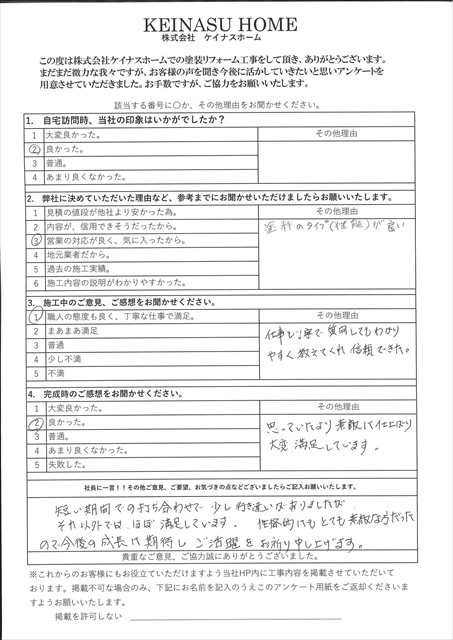 KEINASU HOME
株式会社　ケイナスホーム
この度は株式会社ケイナスホームでの塗装リフォーム工事をして頂き、ありがとうございます。
まだまだ微力な我々ですが、お客様の声を聞き今後に活かしていきたいと思いアンケートを
用意させていただきました。お手数ですが、ご協力をお願いいたします。
該当する番号に〇か、その他理由をお聞かせください。
1. 自宅訪問時、当社の印象はいかがでしたか？
1 大変良かった。 その他理由
2 良かった。
3 普通。
4 あまり良くなかった。
2. 弊社に決めていただいた理由など、参考までにお聞かせいただけましたらお願いいたします。
1 見積の値段が他社より安かった為。 その他理由
2 内容が、信用できそうだったから。 塗料のタイプ(性能)が良い
3 営業の対応が良く、気に入ったから。
4 地元業者だから。
5 過去の施工実績。
6 施工内容の説明がわかりやすかった。
3. 施工中のご意見、ご感想をお聞かせください。
1 職人の態度も良く、丁寧な仕事で満足。 その他理由
2 まあまあ満足 仕事も丁寧で質問してもわかり
3 普通 やすく教えてくれ信頼できた。
4 少し不満
5 不満
4. 完成時のご感想をお聞かせください。
1 大変良かった。 その他理由
2 良かった。 思っていたより素敵に仕上がり
3 普通。 大変満足しています。
4 あまり良くなかった。
5 失敗した。
社長に一言！！その他ご意見、ご要望、お気づきの点などございましたらご記入お願いいたします。
短い期間での打ち合わせで少し行き違いはありましたが
それ以外では、ほぼ満足しています。 性格的にもとても素敵な方だった
ので今後の成長に期待しご活躍をお祈り申し上げます。
貴重なご意見、ご協力誠にありがとうございました。
※これからのお客様にもお役立ていただけますよう当社HP内に工事内容を掲載させていただいて
おります。掲載不可な場合のみ、下記にお名前を記入のうえこのアンケート用紙をご返却くださいま
すようお願いいたします。
掲載を許可しない